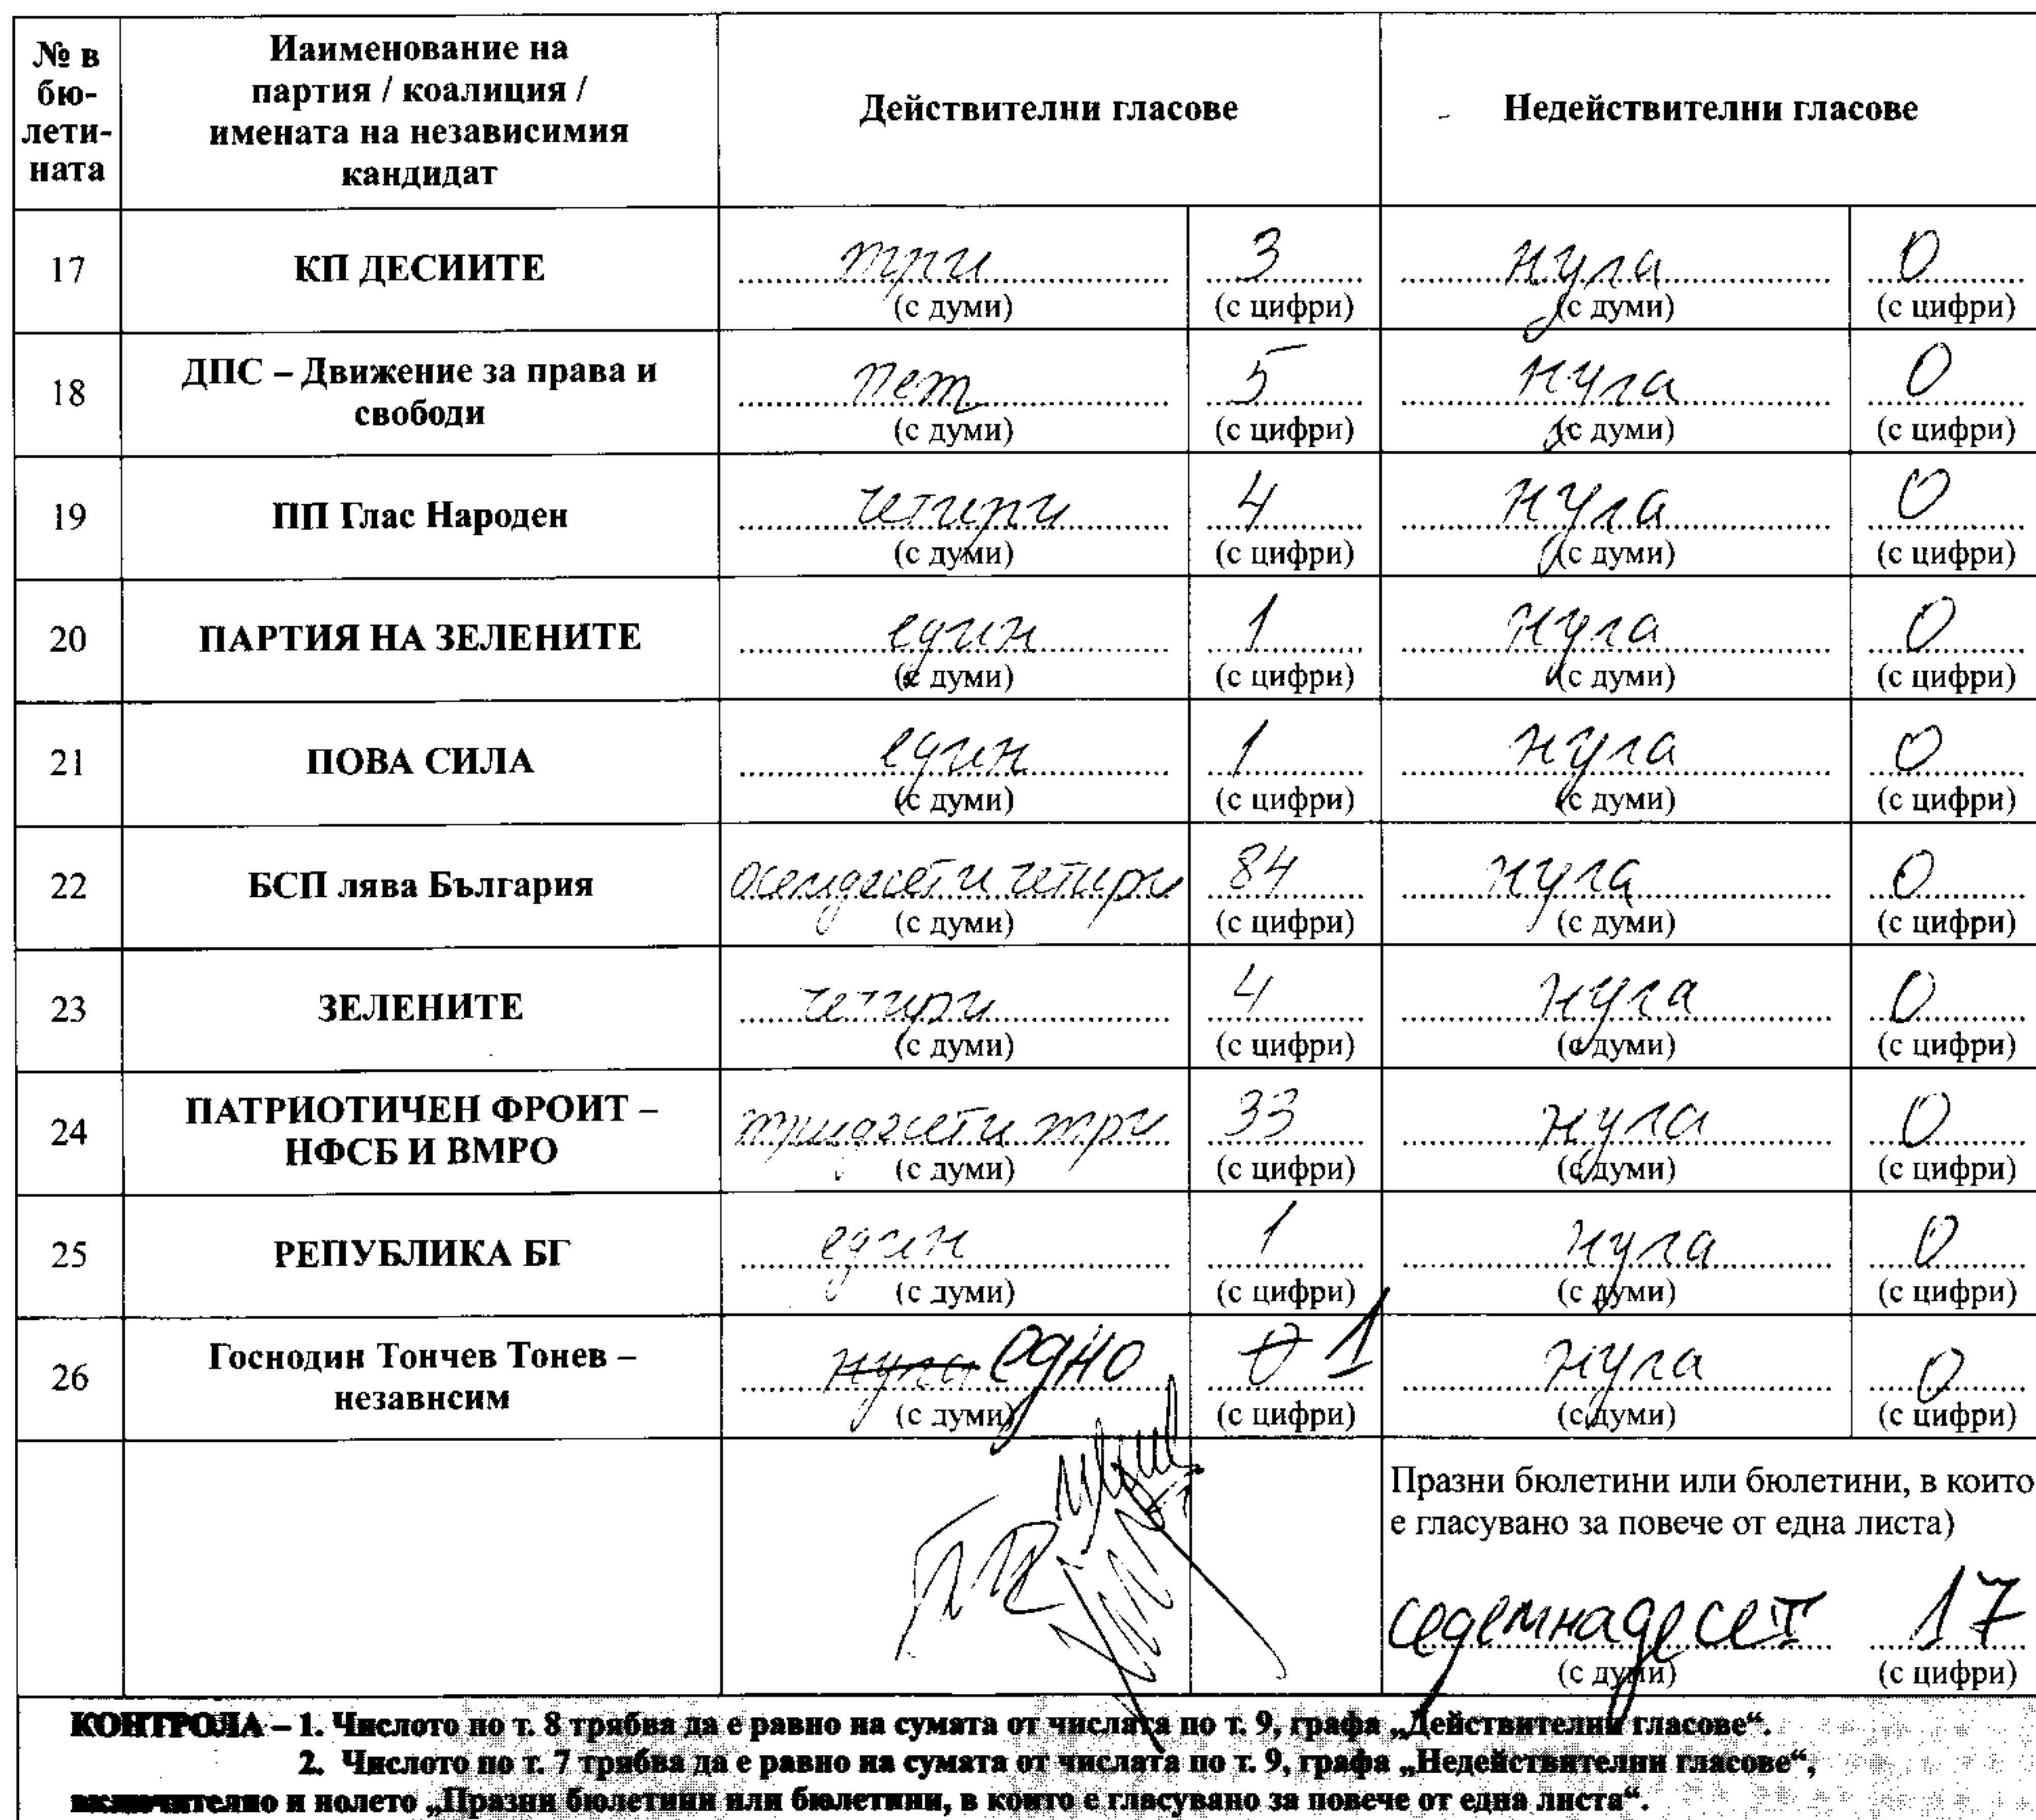 № в бю-лети-ната
Иаименование на партия / коалиция / имената на независимия кандидат
Действителни гласове
Недействителни гласове
17 КП ДЕСИИТЕ три 3 нула 0
(с думи) (с цифри) (с думи) (с цифри)
18 ДПС – Движение за права и свободи пет 5 нула 0
(с думи) (с цифри) (с думи) (с цифри)
19 ПП Глас Народен четири 4 нула 0
(с думи) (с цифри) (с думи) (с цифри)
20 ПАРТИЯ НА ЗЕЛЕНИТЕ един 1 нула 0
(с думи) (с цифри) (с думи) (с цифри)
21 ПОВА СИЛА един 1 нула 0
(с думи) (с цифри) (с думи) (с цифри)
22 БСП лява България осемдесет и четири 84 нула 0
(с думи) (с цифри) (с думи) (с цифри)
23 ЗЕЛЕНИТЕ четири 4 нула 0
(с думи) (с цифри) (с думи) (с цифри)
24 ПАТРИОТИЧЕН ФРОИТ – НФСБ И ВМРО тридесет и три 33 нула 0
(с думи) (с цифри) (с думи) (с цифри)
25 РЕПУБЛИКА БГ един 1 нула 0
(с думи) (с цифри) (с думи) (с цифри)
26 Госнодин Тончев Тонев – незавнсим нула едно 0 1 нула 0
(с думи) (с цифри) (с думи) (с цифри)
Празни бюлетини или бюлетини, в които
е гласувано за повече от една листа)
седемнадесет 17
(с думи) (с цифри)
КОНТРОЛА – 1. Числото по т. 8 трябва да е равно на сумата от числата по т. 9, графа „Действителни гласове“.
2. Числото по т. 7 трябва да е равно на сумата от числата по т. 9, графа „Недействителни гласове“,
включително и нолето „Празни бюлетини или бюлетини, в които е гласувано за повече от една листа“.